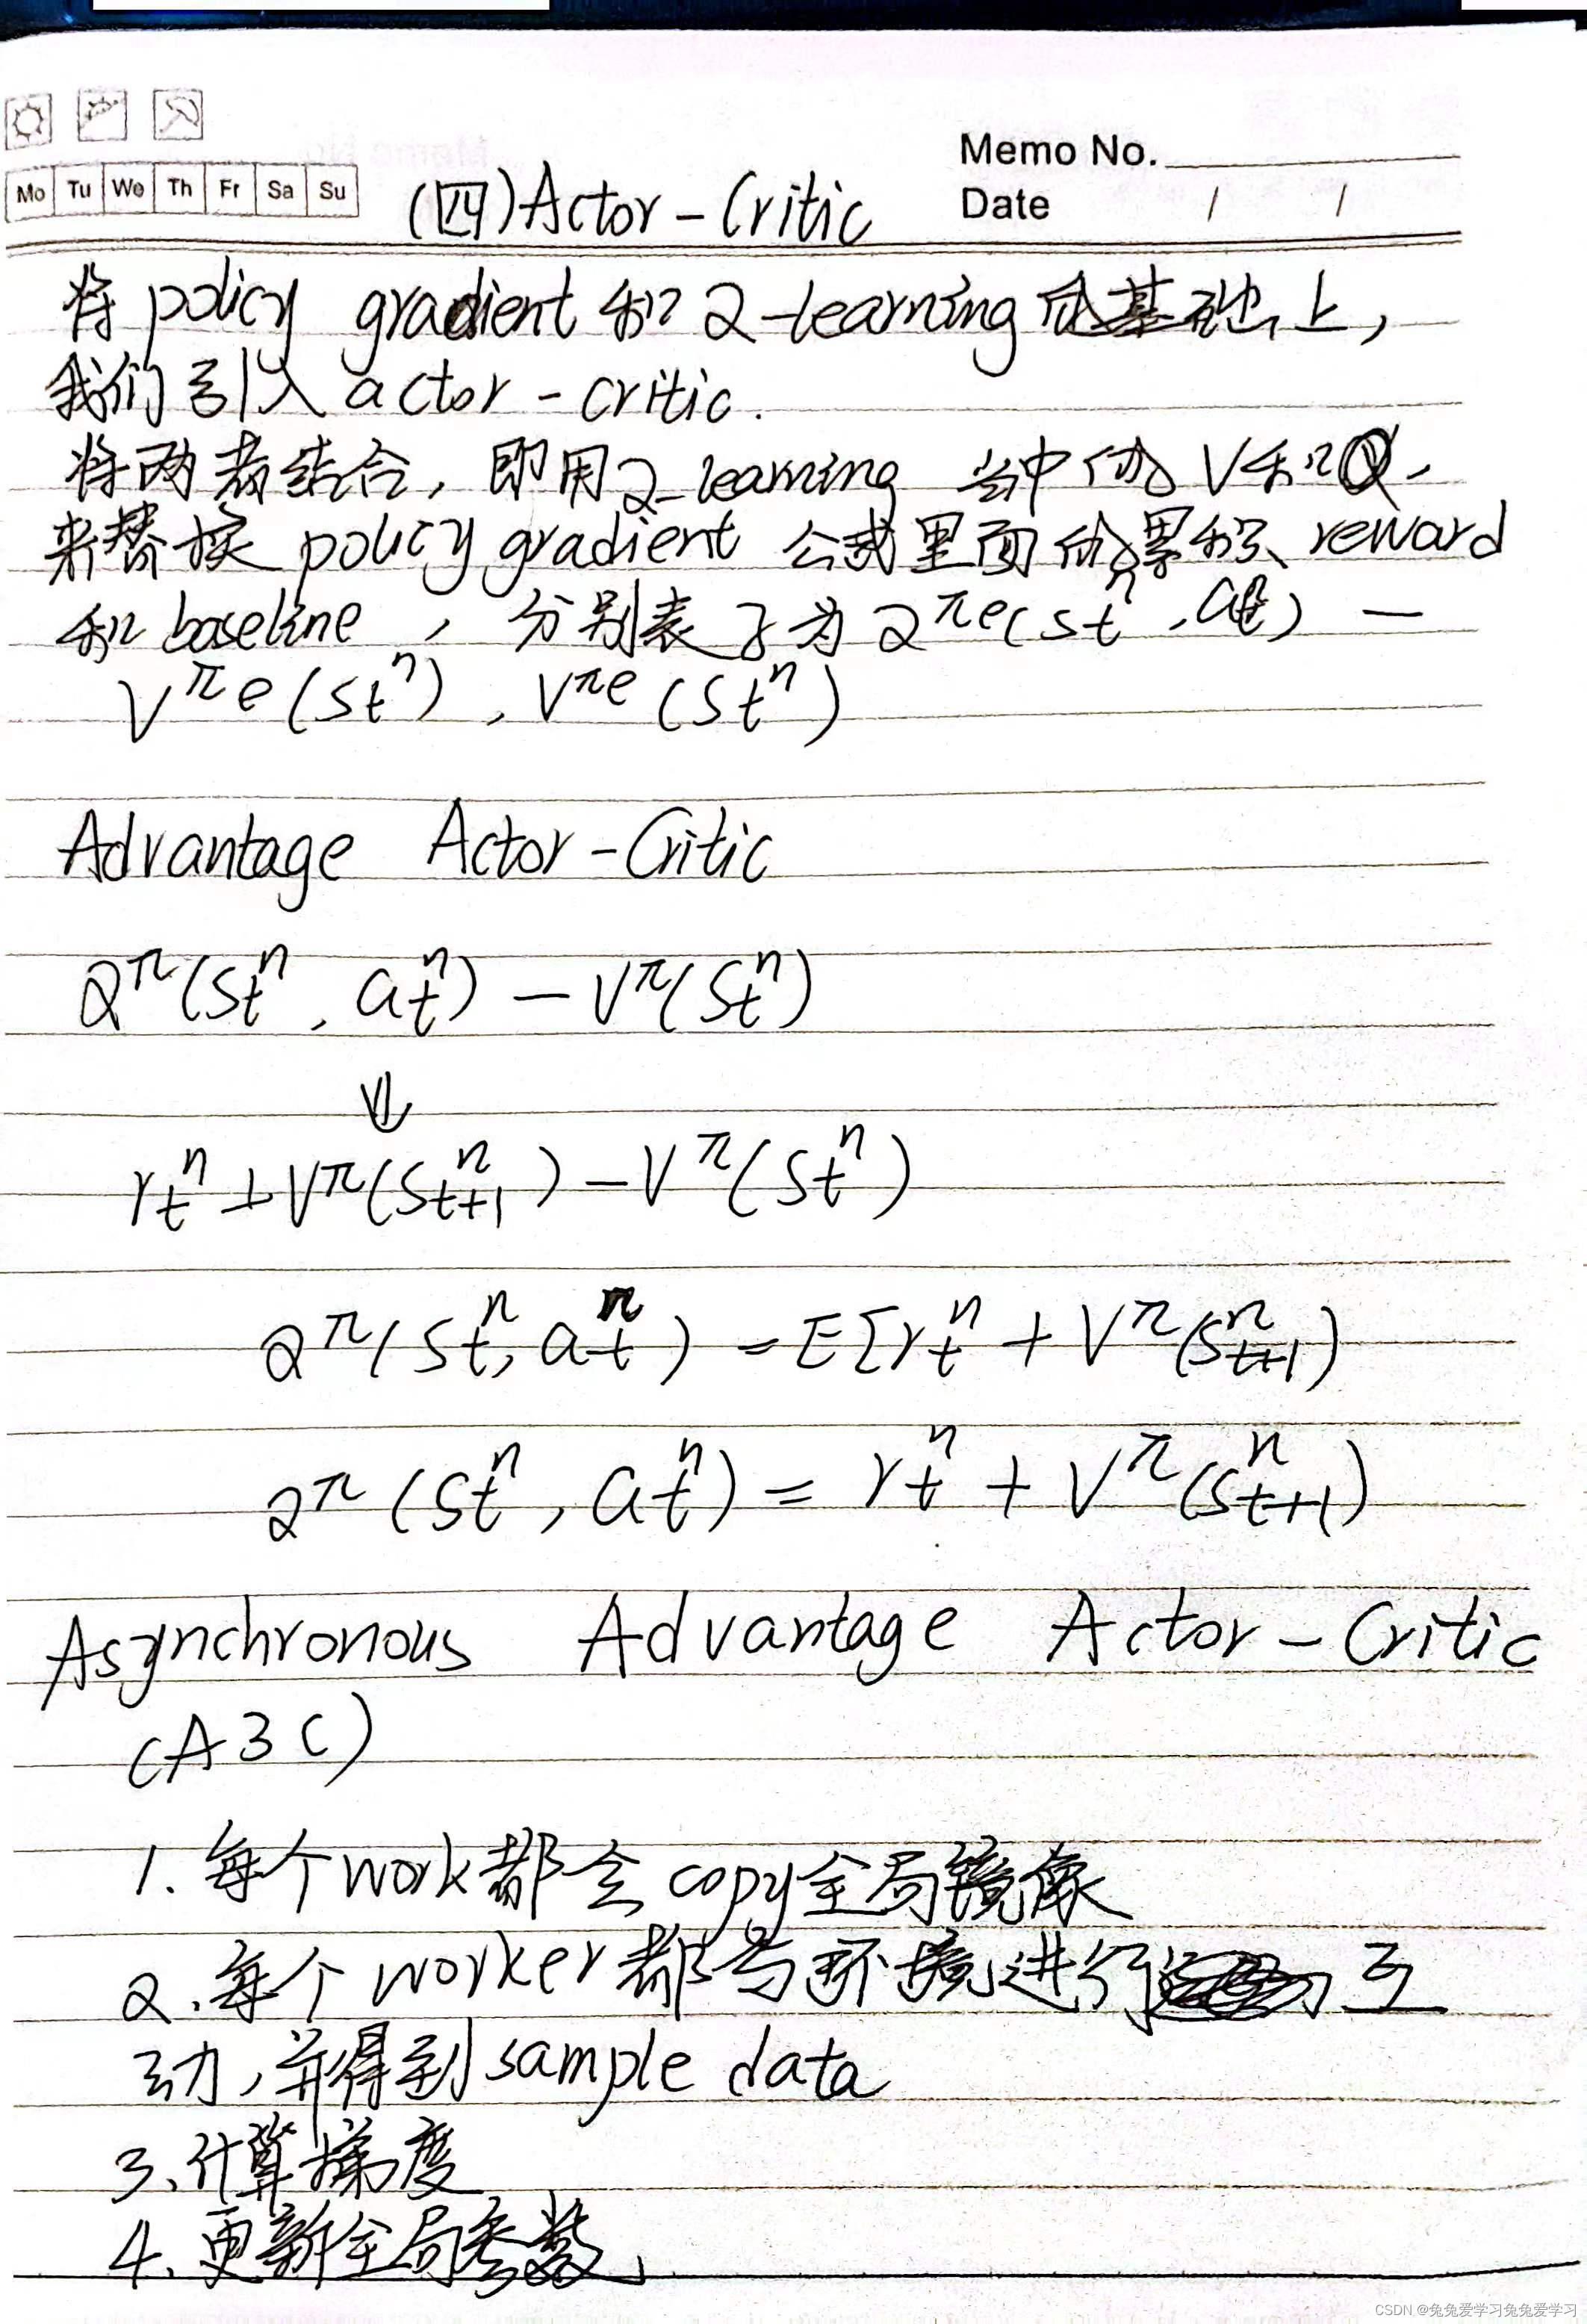 Memo No.
Mo Tu We Th Fr Sa Su
Date / /
(四)Actor-Critic
将policy gradient和Q-learning的基础上,
我们引入actor-critic.
将两者结合,即用Q-learning当中的V和Q,
来替换policy gradient公式里面的累积reward
和baseline,分别表示为Q^πθ(s_t^n, a_t^n) —
V^πθ(s_t^n), V^πθ(s_t^n)
Advantage Actor-Critic
Q^π(s_t^n, a_t^n) — V^π(s_t^n)
⇓
r_t^n + V^π(s_{t+1}^n) — V^π(s_t^n)
Q^π(s_t^n, a_t^n) = E[r_t^n + V^π(s_{t+1}^n)
Q^π(s_t^n, a_t^n) = r_t^n + V^π(s_{t+1}^n)
Asynchronous Advantage Actor-Critic
(A3C)
1.每个work都会copy全局镜像
2.每个worker都与环境进行互
动,并得到sample data
3.计算梯度
4.更新全局参数
CSDN @兔兔爱学习兔兔爱学习